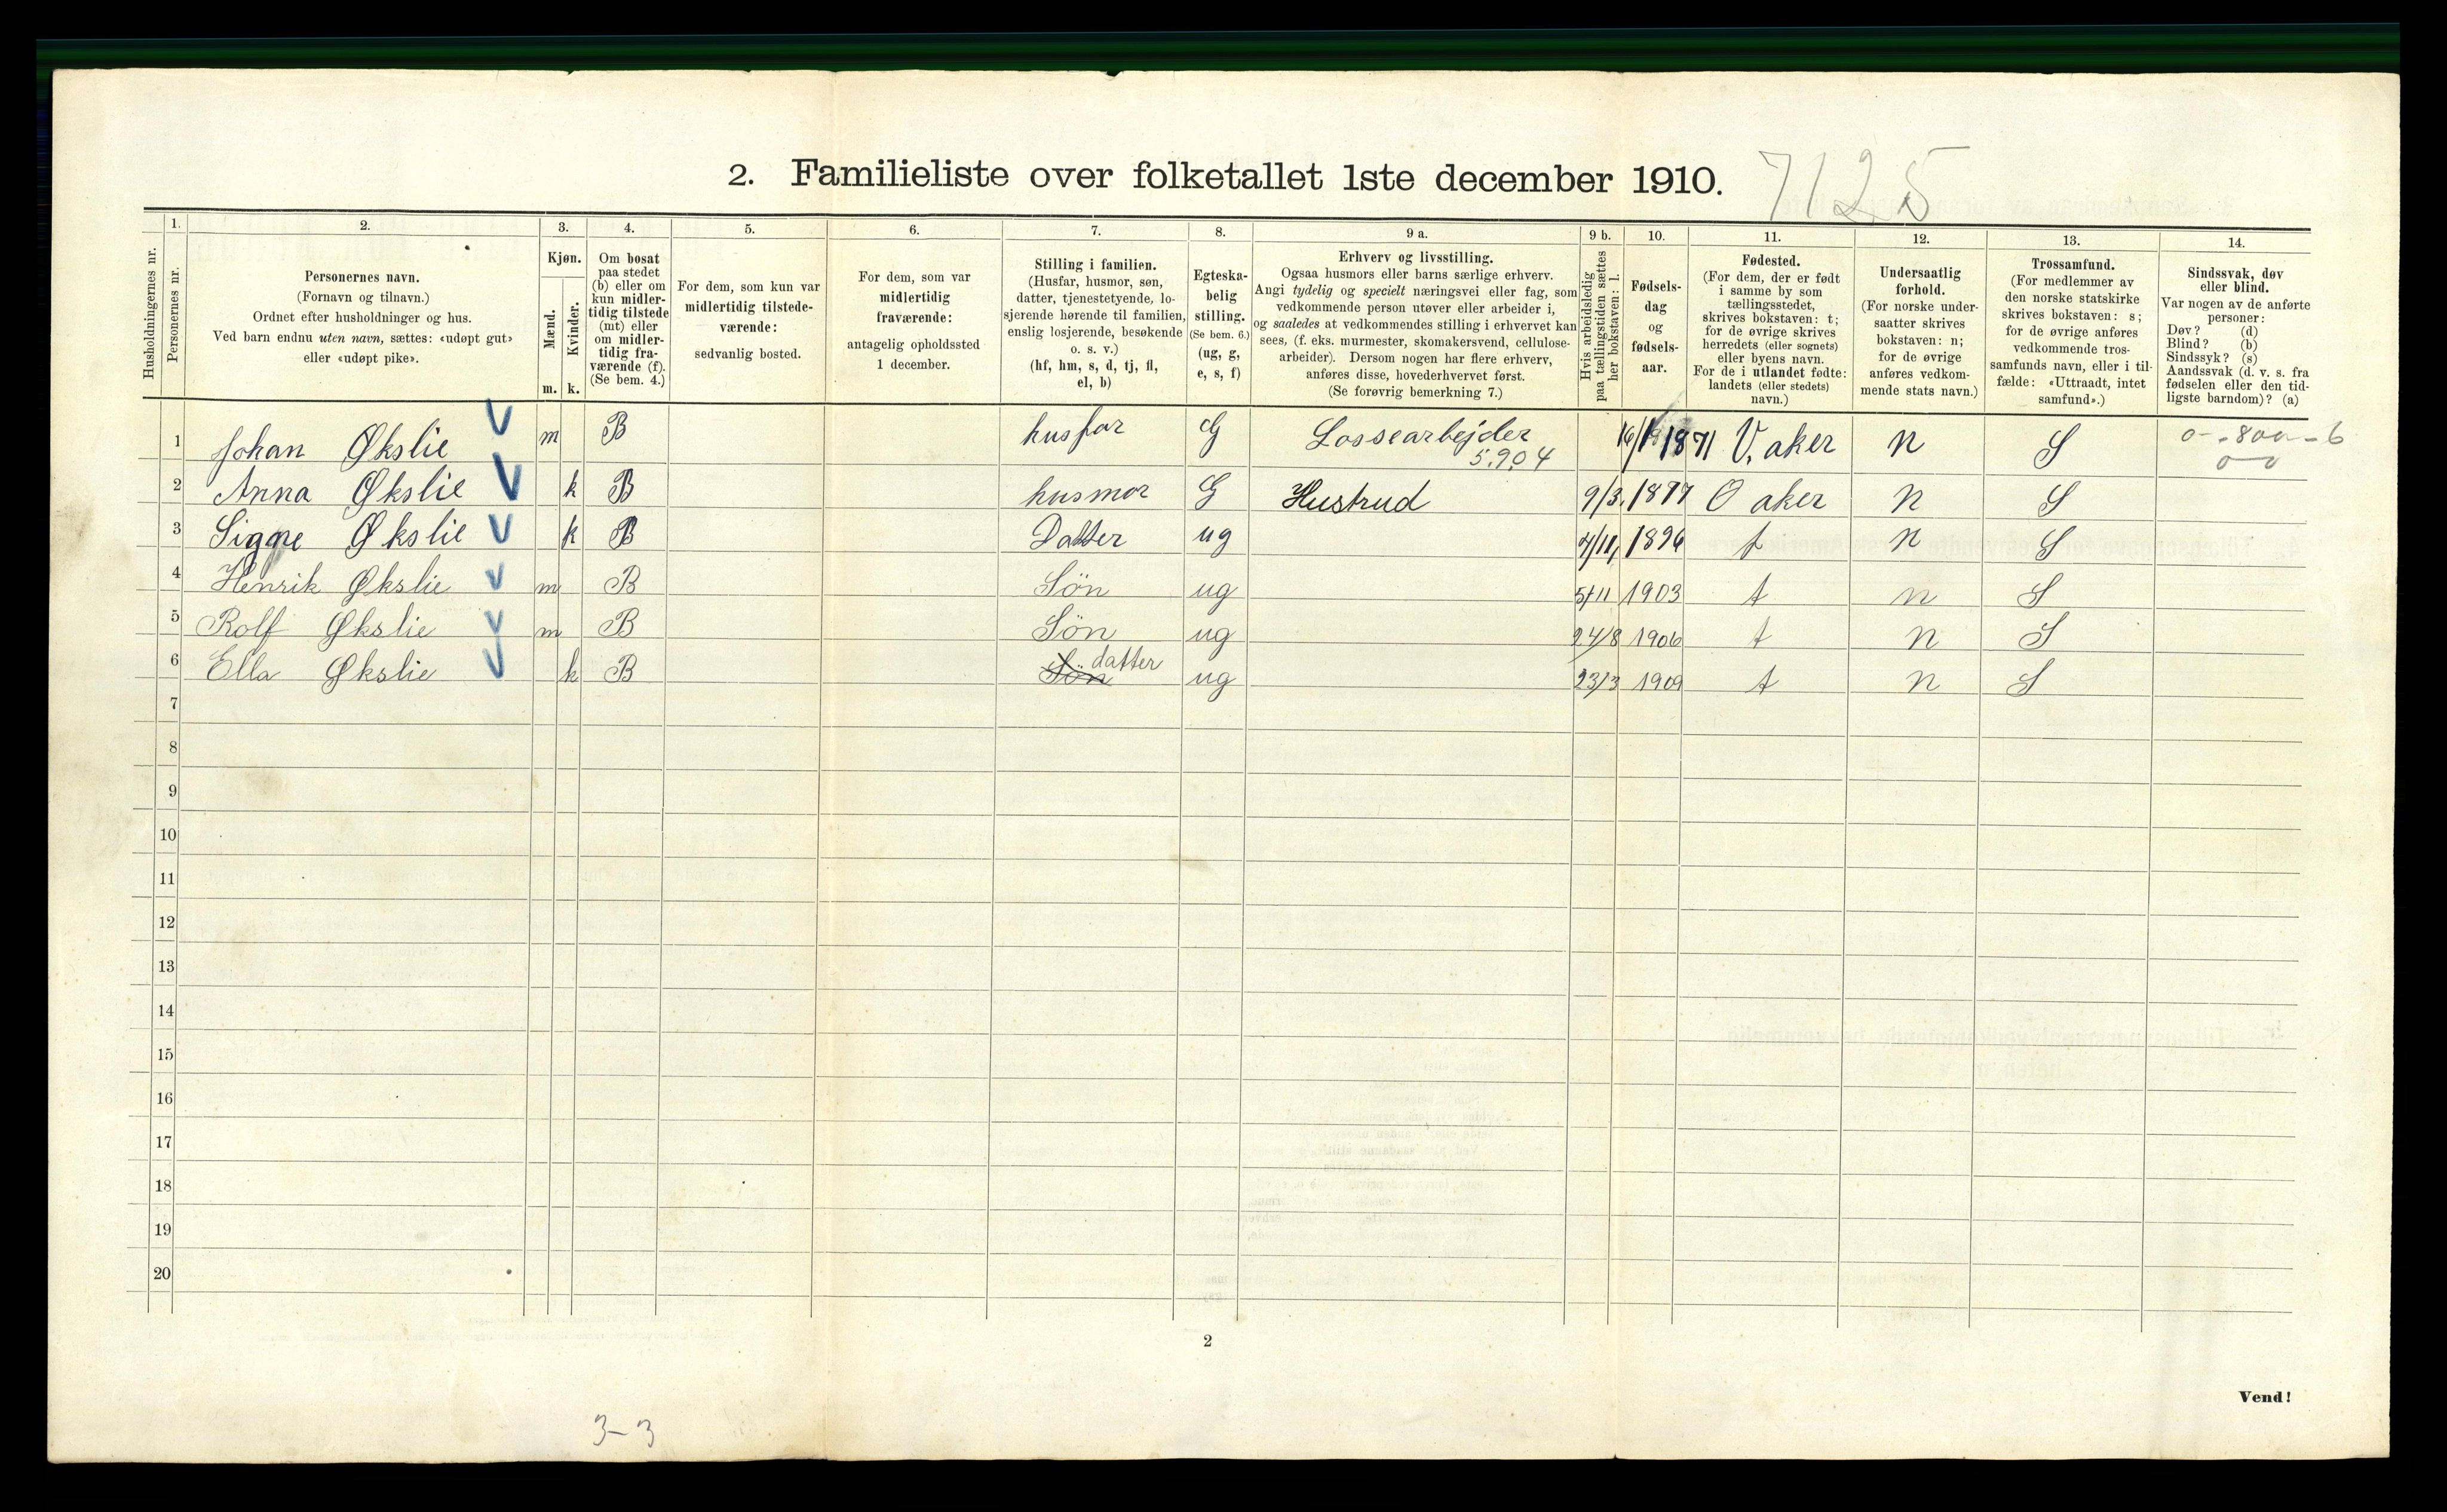 2. Familieliste over folketallet 1ste december 1910. 7125
Husholdningernes nr.
1.
Personernes nr.
2.
Personernes navn.
(Fornavn og tilnavn.)
Ordnet efter husholdninger og hus.
Ved barn endnu uten navn, sættes: «udøpt gut»
eller «udøpt pike».
3.
Kjøn.
Mænd.
m.
Kvinder.
k.
4.
Om bosat
paa stedet
(b) eller om
kun midler-
tidig tilstede
(mt) eller
om midler-
tidig fra-
værende (f).
(Se bem. 4.)
5.
For dem, som kun var
midlertidig tilstede-
værende:
sedvanlig bosted.
6.
For dem, som var
midlertidig
fraværende:
antagelig opholdssted
1 december.
7.
Stilling i familien.
(Husfar, husmor, søn,
datter, tjenestetyende, lo-
sjerende hørende til familien,
enslig losjerende, besøkende
o. s. v.)
(hf, hm, s, d, tj, fl,
el, b)
8.
Egteska-
belig
stilling.
(Se bem. 6.)
(ug, g,
e, s, f)
9 a.
Erhverv og livsstilling.
Ogsaa husmors eller barns særlige erhverv.
Angi tydelig og specielt næringsvei eller fag, som
vedkommende person utøver eller arbeider i,
og saaledes at vedkommendes stilling i erhvervet kan
sees, (f. eks. murmester, skomakersvend, cellulose-
arbeider). Dersom nogen har flere erhverv,
anføres disse, hovederhvervet først.
(Se forøvrig bemerkning 7.)
9 b.
Hvis arbeidsledig
paa tællingstiden sættes
her bokstaven: l.
10.
Fødsels-
dag
og
fødsels-
aar.
11.
Fødested.
(For dem, der er født
i samme by som
tællingsstedet,
skrives bokstaven: t;
for de øvrige skrives
herredets (eller sognets)
eller byens navn.
For de i utlandet fødte:
landets (eller stedets)
navn.)
12.
Undersaatlig
forhold.
(For norske under-
saatter skrives
bokstaven: n;
for de øvrige
anføres vedkom-
mende stats navn.)
13.
Trossamfund.
(For medlemmer av
den norske statskirke
skrives bokstaven: s;
for de øvrige anføres
vedkommende tros-
samfunds navn, eller i til-
fælde: «Uttraadt, intet
samfund».)
14.
Sindssvak, døv
eller blind.
Var nogen av de anførte
personer:
Døv? (d)
Blind? (b)
Sindssyk? (s)
Aandssvak (d. v. s. fra
fødselen eller den tid-
ligste barndom)? (a)
1 Johan Økslie V m B husfar G Lossearbejder 1871 V, aker n S
5.904
2 Anna Økslie V k B husmor G Hustrud 9/3, 1877 O aker n S
3 Signe Økslie V k B Datter ug 1896 t n S
4 Henrik Økslie V m B Sön ug 5/11 1903 t n S
5 Rolf Økslie V m B Sön ug 24/8 1906 t n S
6 Ella Økslie V k B Sön datter ug 23/3 1909 t n S
7
8
9
10
11
12
13
14
15
16
17
18
19
20
2
Vend!
3-3